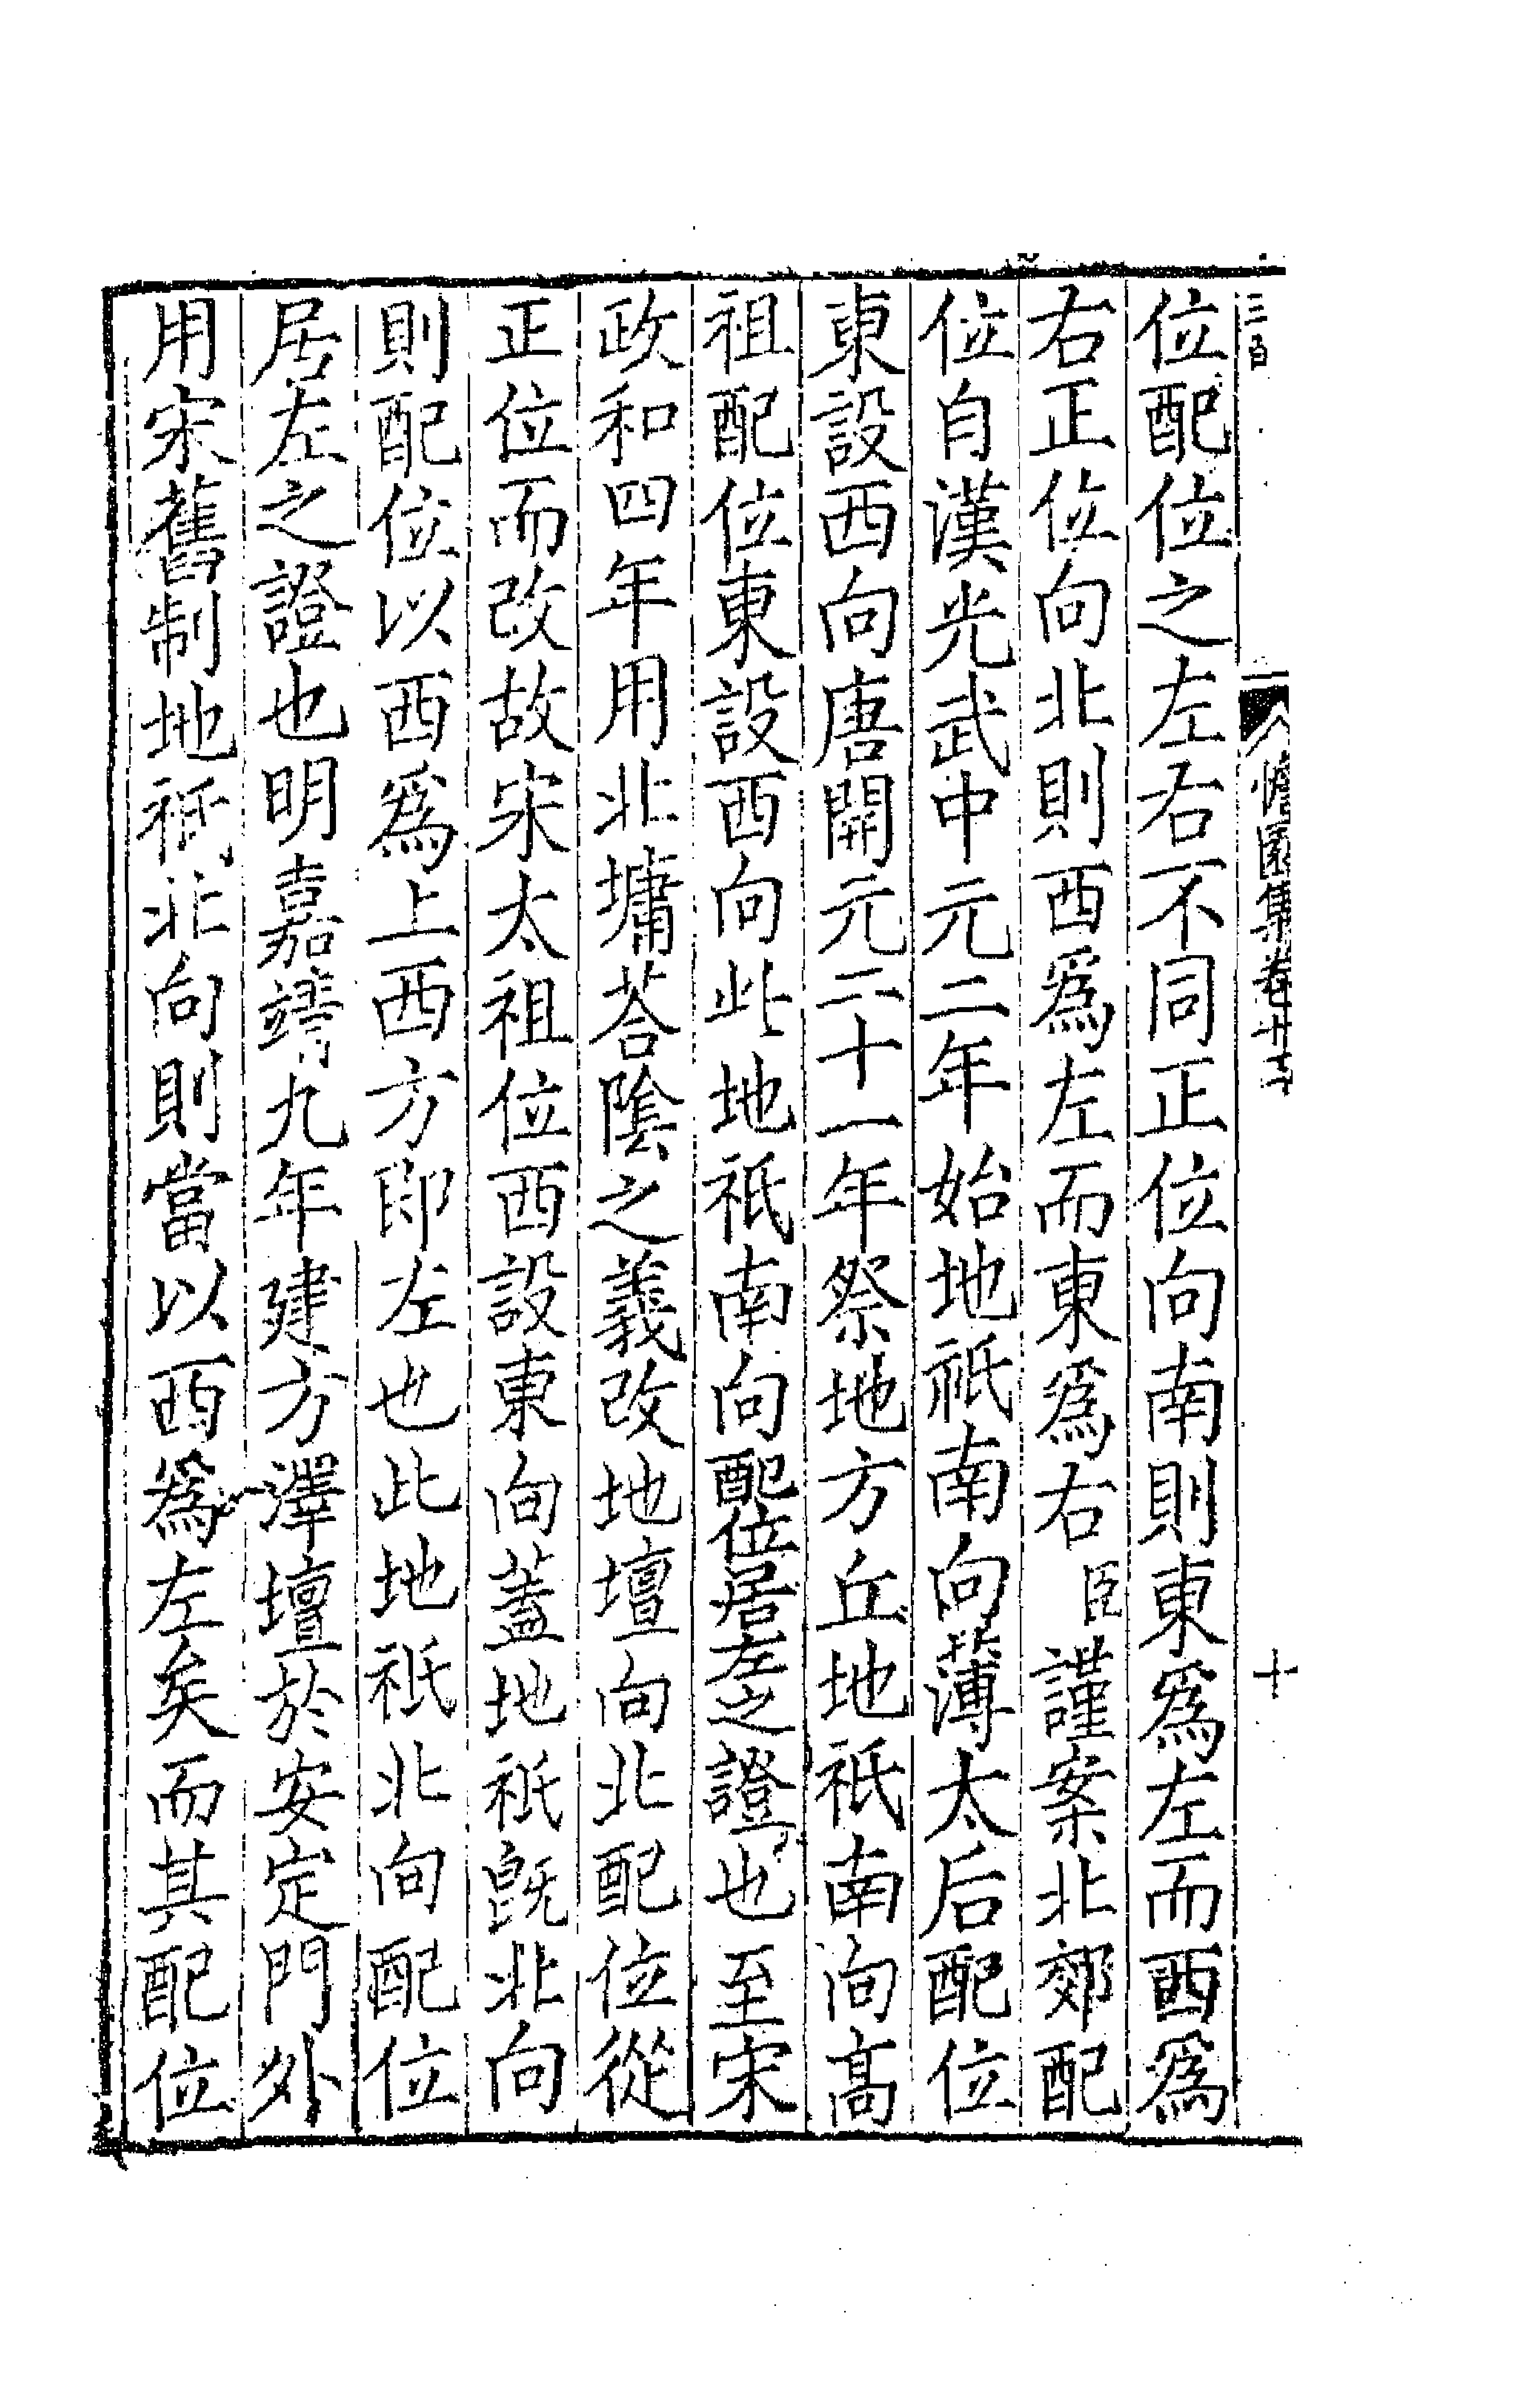 三百
憺園集卷十
位配位之左右不同正位向南則東爲左而西爲
右正位向北則西爲左而東爲右臣謹案北郊配
位自漢光武中元二年始地祇南向薄太后配位
東設西向唐開元二十一年祭地方丘地祇南向高
祖配位東設西向此地祇南向配位居左之證也至宋
政和四年用北墉荅陰之義改地壇向北配位從
正位而改故宋太祖位西設東向蓋地祇旣北向
則配位以西爲上西方即左也此地祇北向配位
居左之證也明嘉靖九年建方澤壇於安定門外
用宋舊制地祇北向則當以西爲左矣而其配位